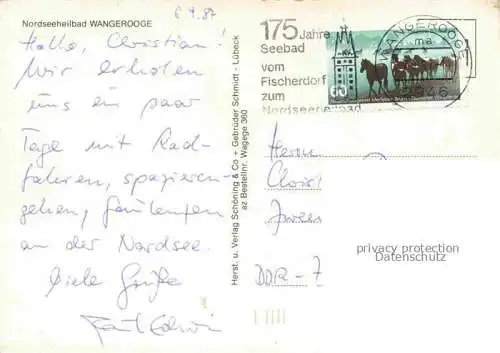 Nordseeheilbad WANGEROOGE
6.4.87
Hallo, Christian!
Wir erholen
uns ein paar
Tage mit Rad-
fahren, spazieren-
gehen, faulenzen
an der Nordsee.
Viele Grüße
Herst. u. Verlag Schöning & Co + Gebrüder Schmidt - Lübeck
az Bestellnr. Wagege 360
175 Jahre
Seebad
vom
Fischerdorf
zum
Nordseeheilbad
WANGEROOGE
ma
2946
60
Herrn
Christ
DDR - 7
privacy protection
Datenschutz